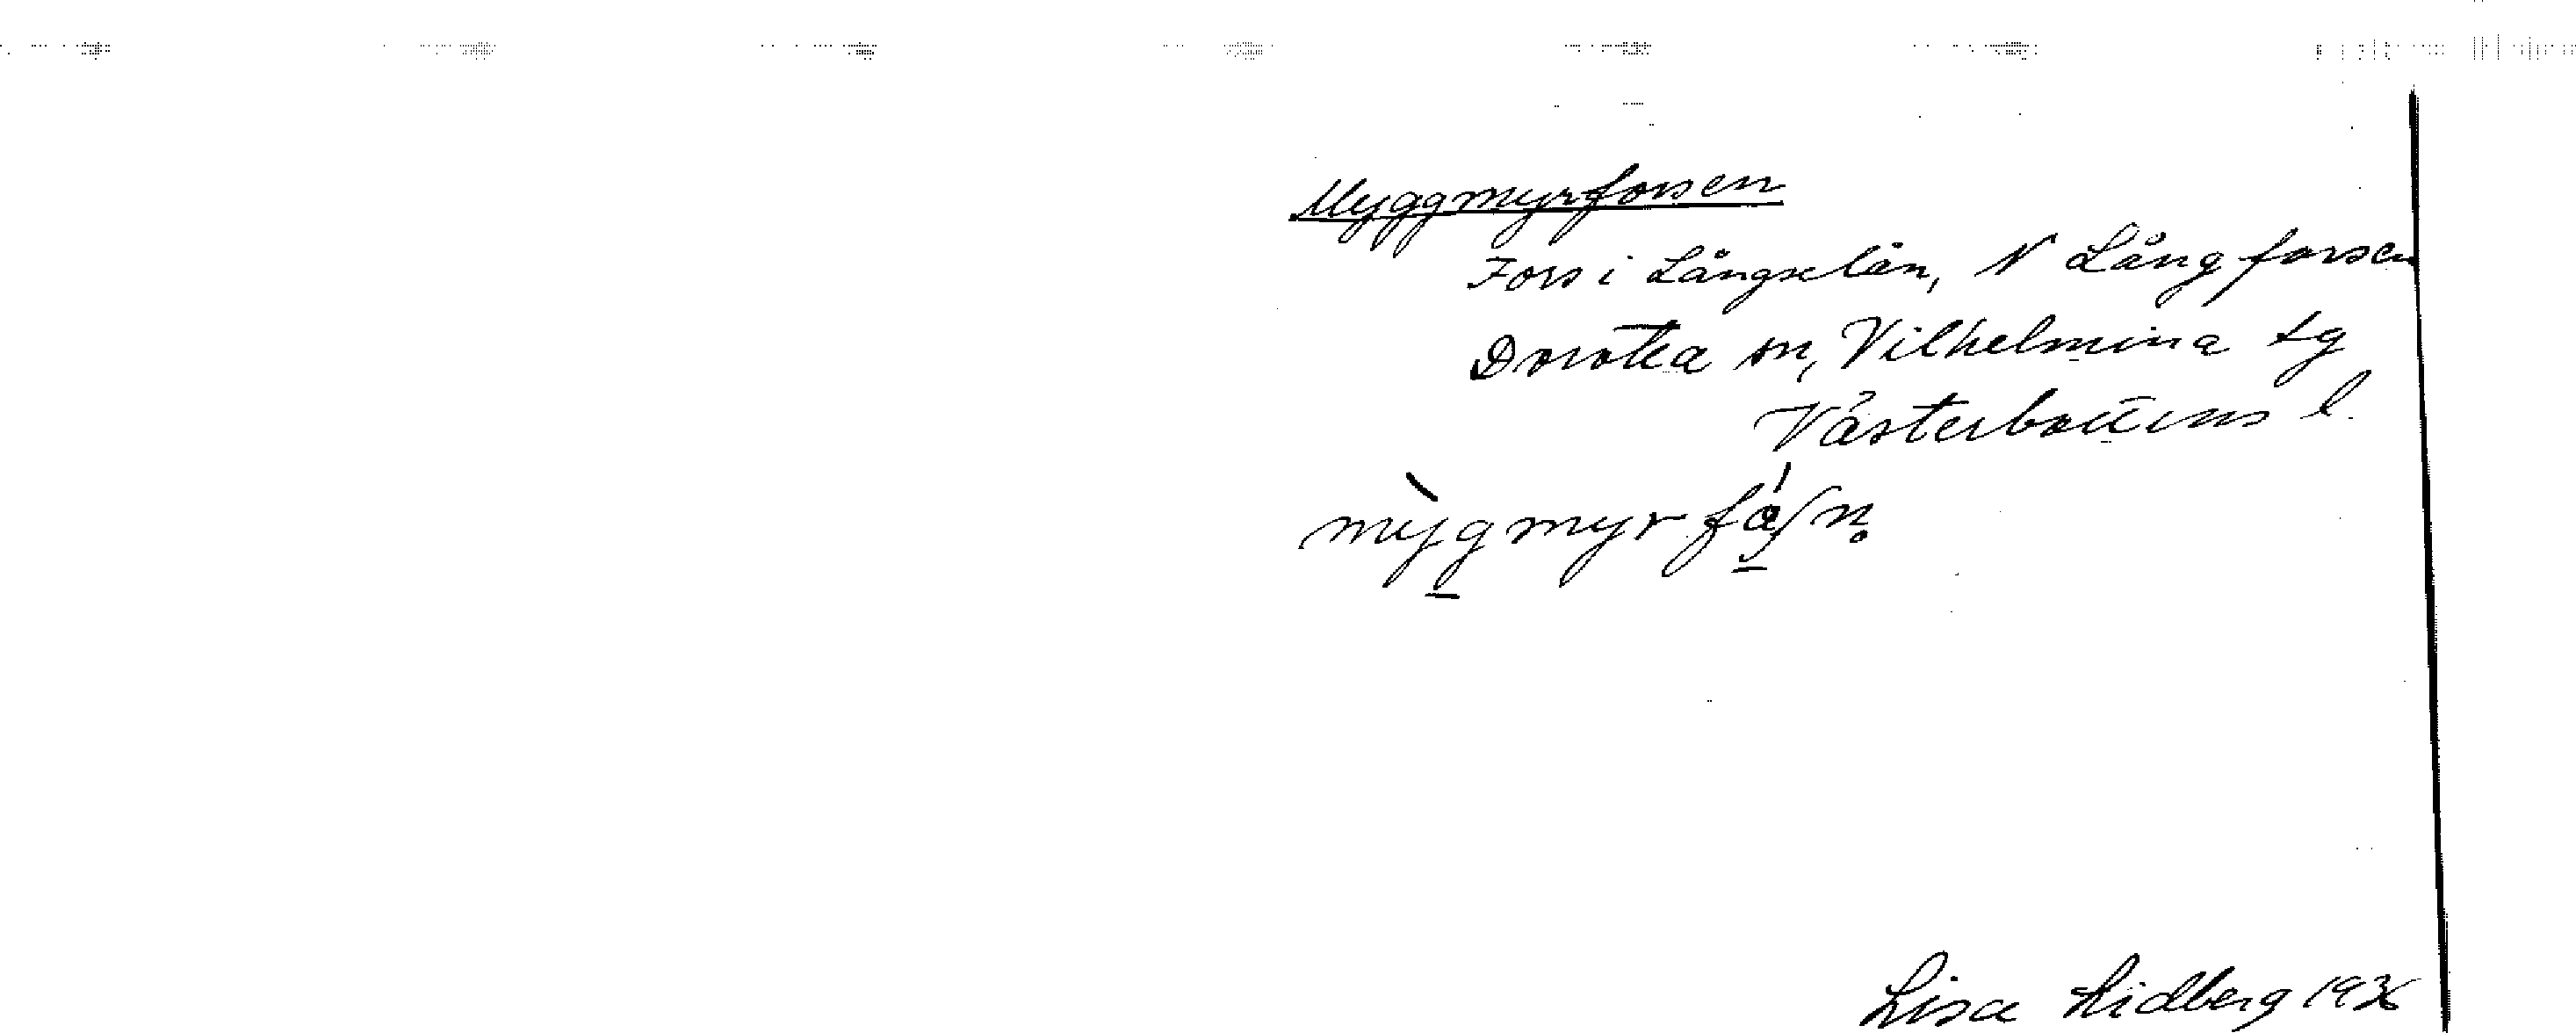 Myggmyrforsen
Fors i Långselån, N Långforsen
Dorotea sn, Vilhelmina tg
Västerbottens l.
Lisa Lidberg 1936